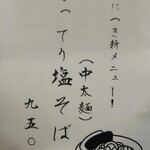 につき新メニュー！
（中太麺）
ってり塩そば
九五〇